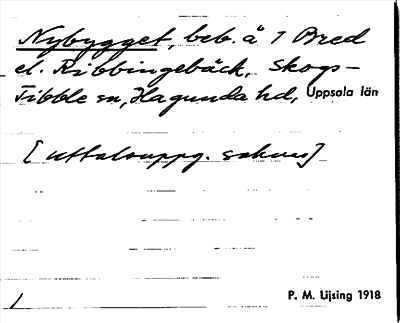 Nybygget, beb. å 1 Bred
el. Ribbingebäck, Skogs-
Tibble sn, Hagunda hd, Uppsala län
[uttalsuppg. saknas]
P. M. Lijsing 1918